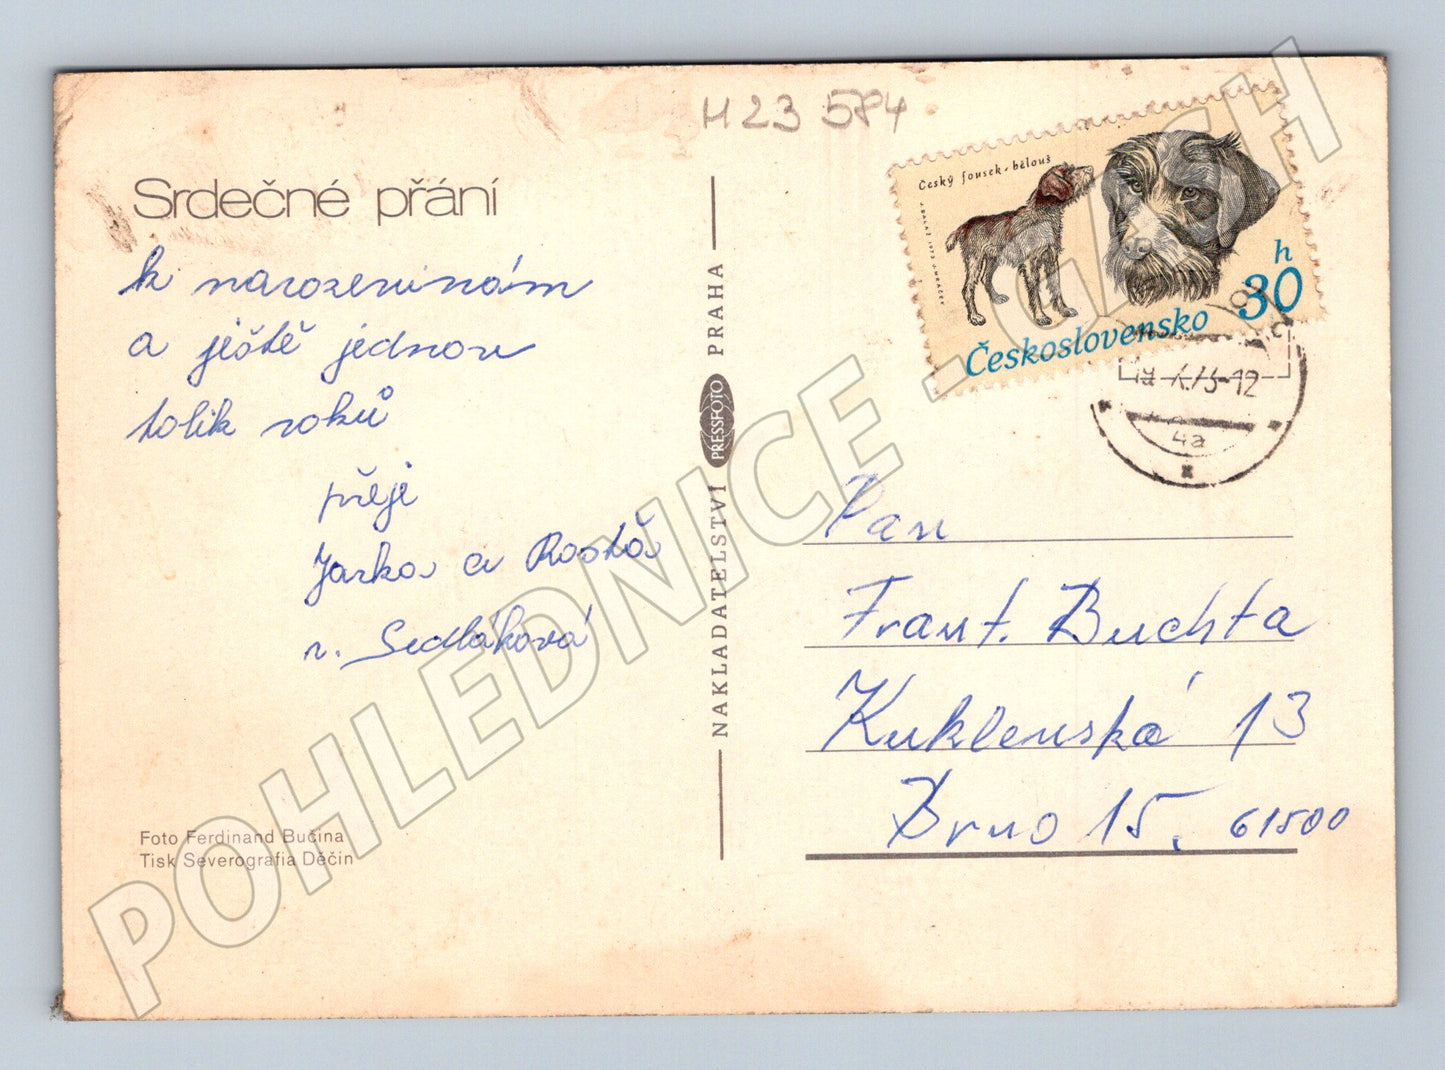 H 23 584
Srdečné přání
k narozeninám
a ještě jednou
tolik roků
přeji
Jarka a Rosťa
r. Sedláková
Foto Ferdinand Bučina
Tisk Severografia Děčín
NAKLADATELSTVÍ PRESSFOTO PRAHA
Český fousek - bělouš
30 h
Československo
4a
Pan
Frant. Buchta
Kuklenská 13
Brno 15. 61500
POHLEDNICE - CASH